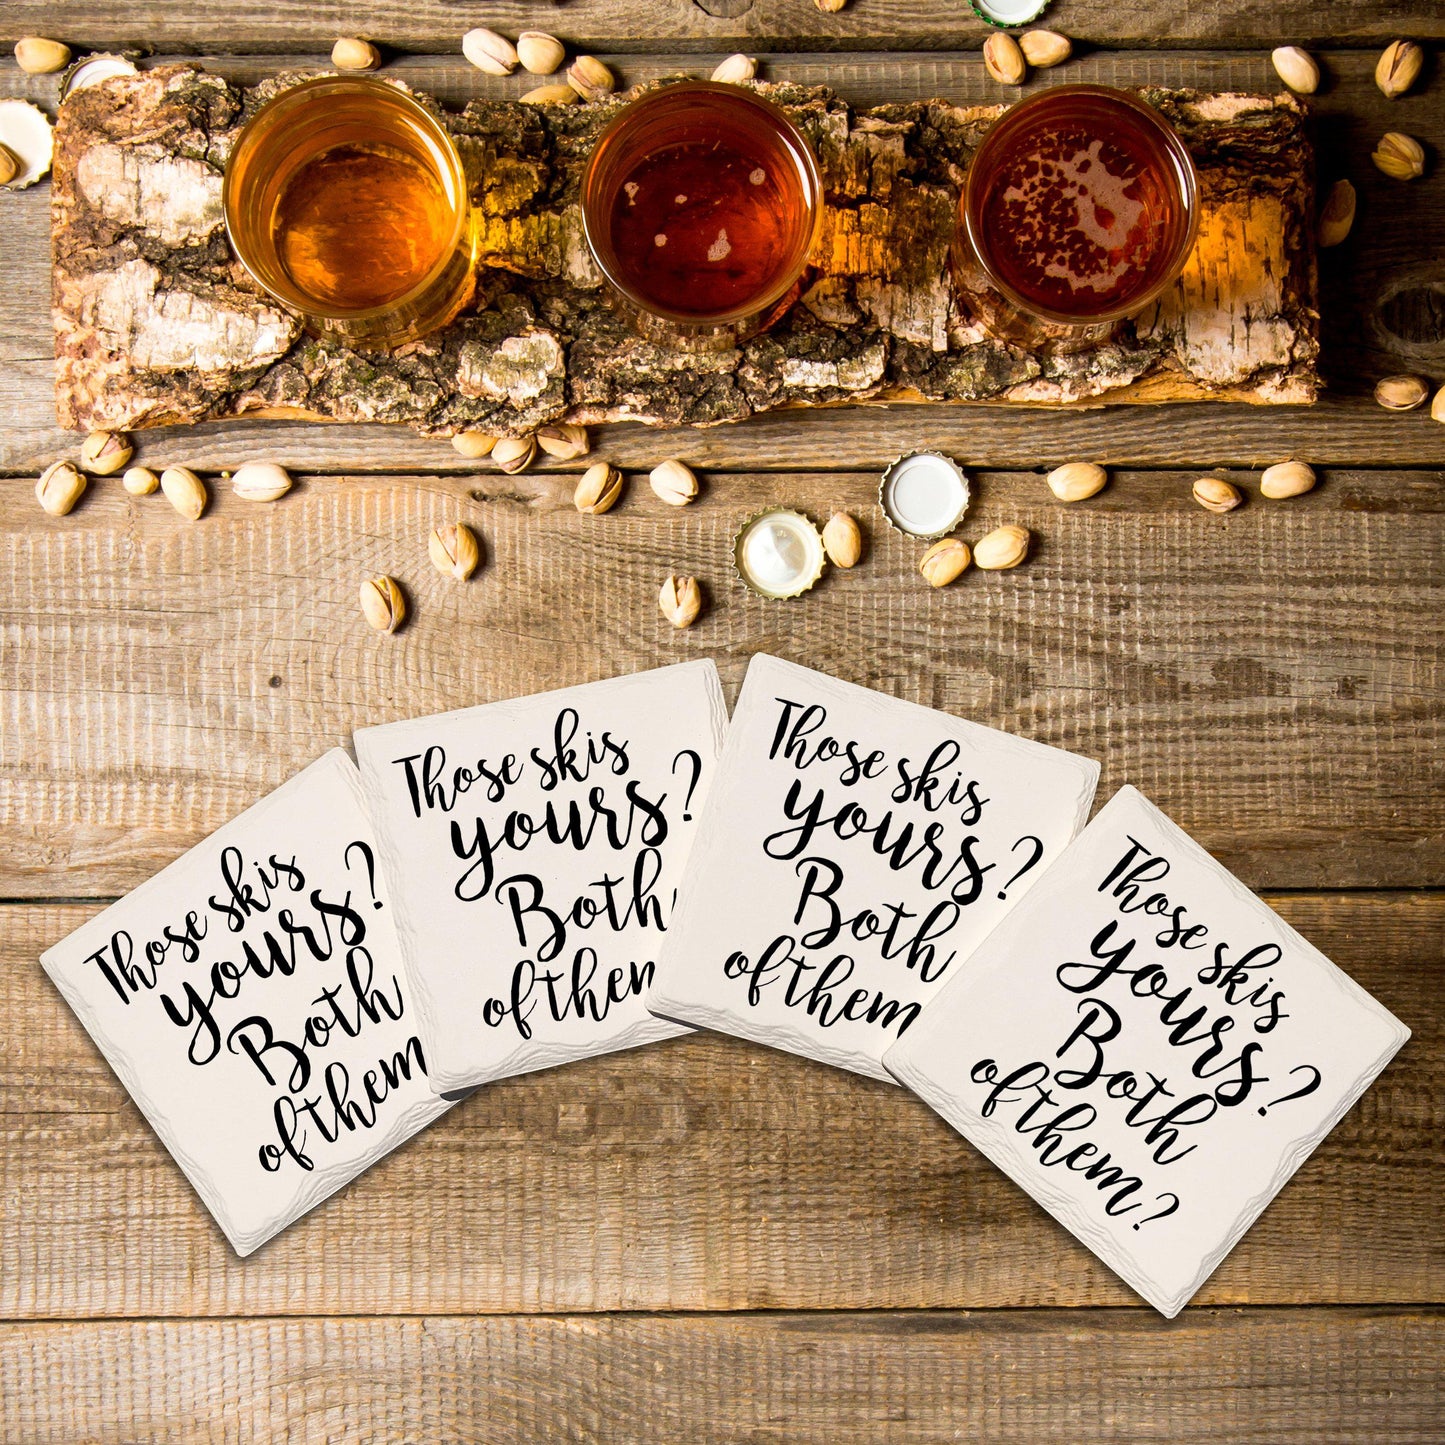 Those skis
yours?
Both
of them
Those skis
yours?
Both
of them
Those skis
yours?
Both
of them
Those skis
yours?
Both
of them?